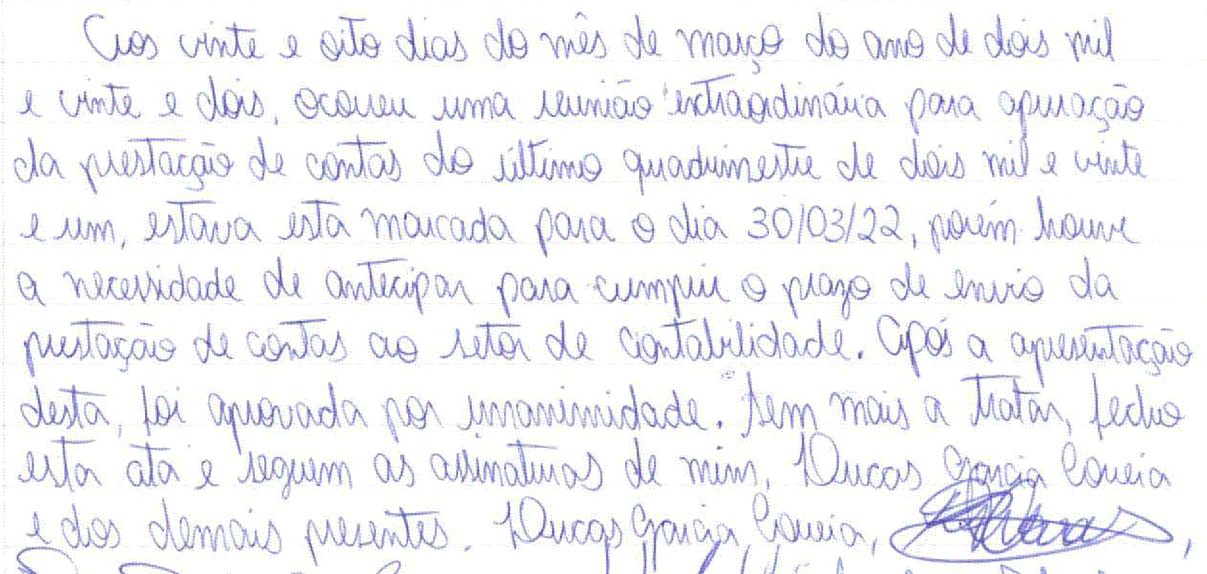 Aos vinte e oito dias do mês de março do ano de dois mil
e vinte e dois, ocorreu uma reunião extraordinária para apuração
da prestação de contas do último quadrimestre de dois mil e vinte
e um, estava esta marcada para o dia 30/03/22, porém houve
a necessidade de antecipar para cumprir o prazo de envio da
prestação de contas ao setor de contabilidade. Após a apresentação
desta, foi aprovada por unanimidade. Sem mais a tratar, fecho
esta ata e seguem as assinaturas de mim, Lucas Garcia Correia
e dos demais presentes. Lucas Garcia Correia,